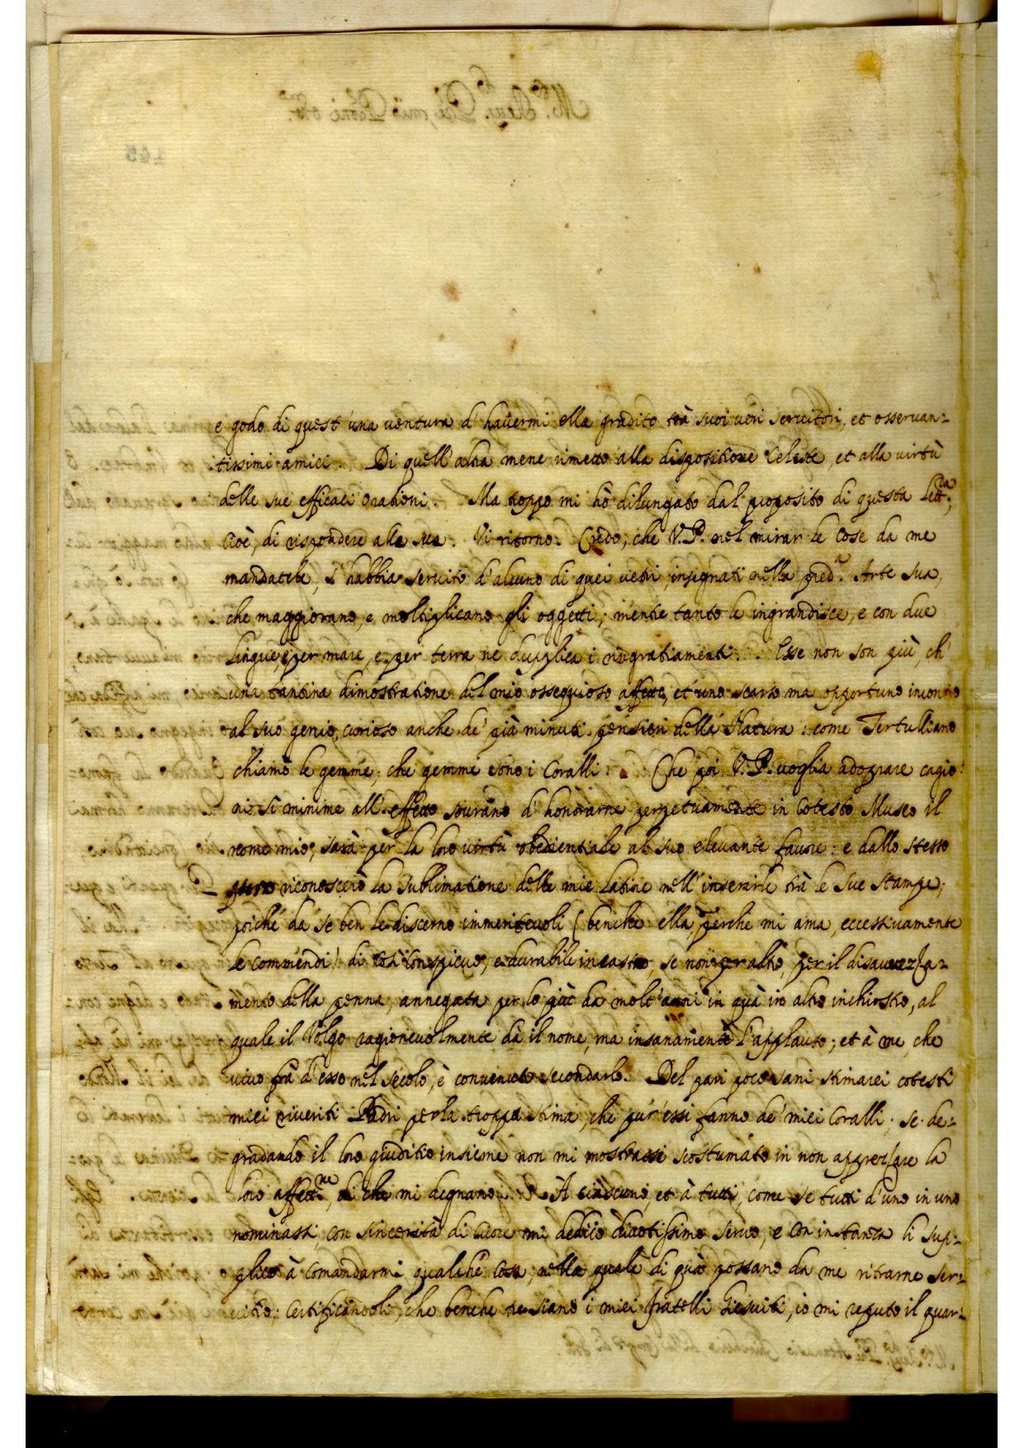 e godo di quest'una ventura d'havermi ella gradito trà suoi veri servitori, et osservan-
tissimi amici. Di quell'altra mene rimetto alla dispositione Celeste, et alla virtù
delle sue efficaci orationi. Ma troppo mi hò dilungato dal proposito di questa
cioè, di rispondere alla sua. Vi ritorno. Credo, che V.P. nel mirar le cose da me
mandatele, s'habbia servito d'alcuno di quei vetri, insegnati nella Arte sua,
che maggiorano, e moltiplicano gli oggetti; mentre tanto le ingrandisce, e con due
lingue, e per mare, e per terra ne duplica i ringratiamenti. Esse non son più, ch'
una tantina dimostratione del mio ossequioso affetto, et uno scarso ma opportuno incontro
al suo genio, curioso anche de' più minuti pensieri della Natura: come Tertulliano
chiamò le gemme: che gemme sono i Coralli. Che poi V.P. voglia adoprare cagio-
ni sì minime all'effetto sovrano d'honorarne perpetuamente in cotesto Museo il
nome mio; sarà per la loro virtù obedientiale al suo elevante favore: e dallo stesso
riconoscerò la sublimatione delle mie latine nell'inserirle trà le sue stampe;
poiché da sè ben le discerno immeritevoli (benche ella, perche mi ama, eccessivamente
le commendi) di così conspicuo, e durabile incastro, se non per altro, per il
mento della penna, annegata per lo più da molt'anni in quà in altro inchiostro, al
quale il Volgo ragionevolmente dà il nome, ma insanamente l'applauso; et à me, che
vivo frà d'esso nel secolo, è convenuto secondarlo. Del pari poco sani stimarei cotesti
miei riveriti Padri per la troppa stima, che pur'essi fanno de' miei Coralli, se de-
gradando il loro giuditio insieme non mi mostrassi scostumato in non apprezzare la
loro affett.ne, di che mi degnano. A ciascuno, et à tutti, come se tutti d'uno in uno
nominassi, con sincerità di cuore mi dedico divotissimo servo, e con instanza li sup-
plico à comandarmi qualche cosa, nella quale di quà possano da me ritrarne ser-
vitio: certificandole, che benche tre siano i miei fratelli Giesuiti, io mi reputo il quar-